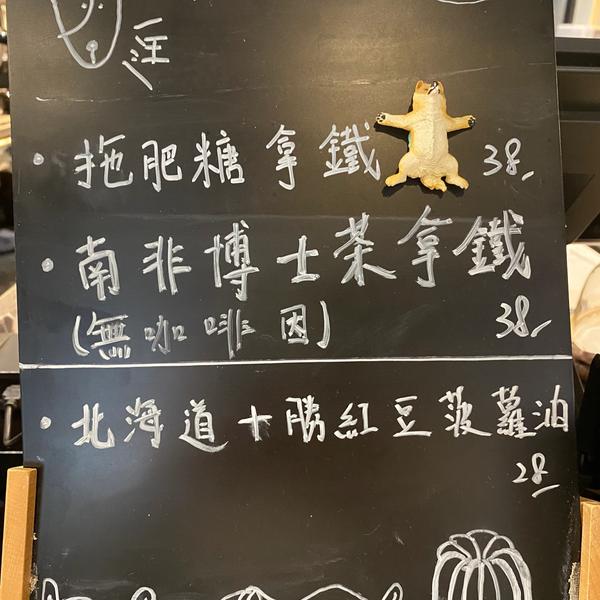 ・拖肥糖拿鐵 38.
・南非博士茶拿鐵
(無咖啡因) 38
・北海道十勝紅豆菠蘿油
28